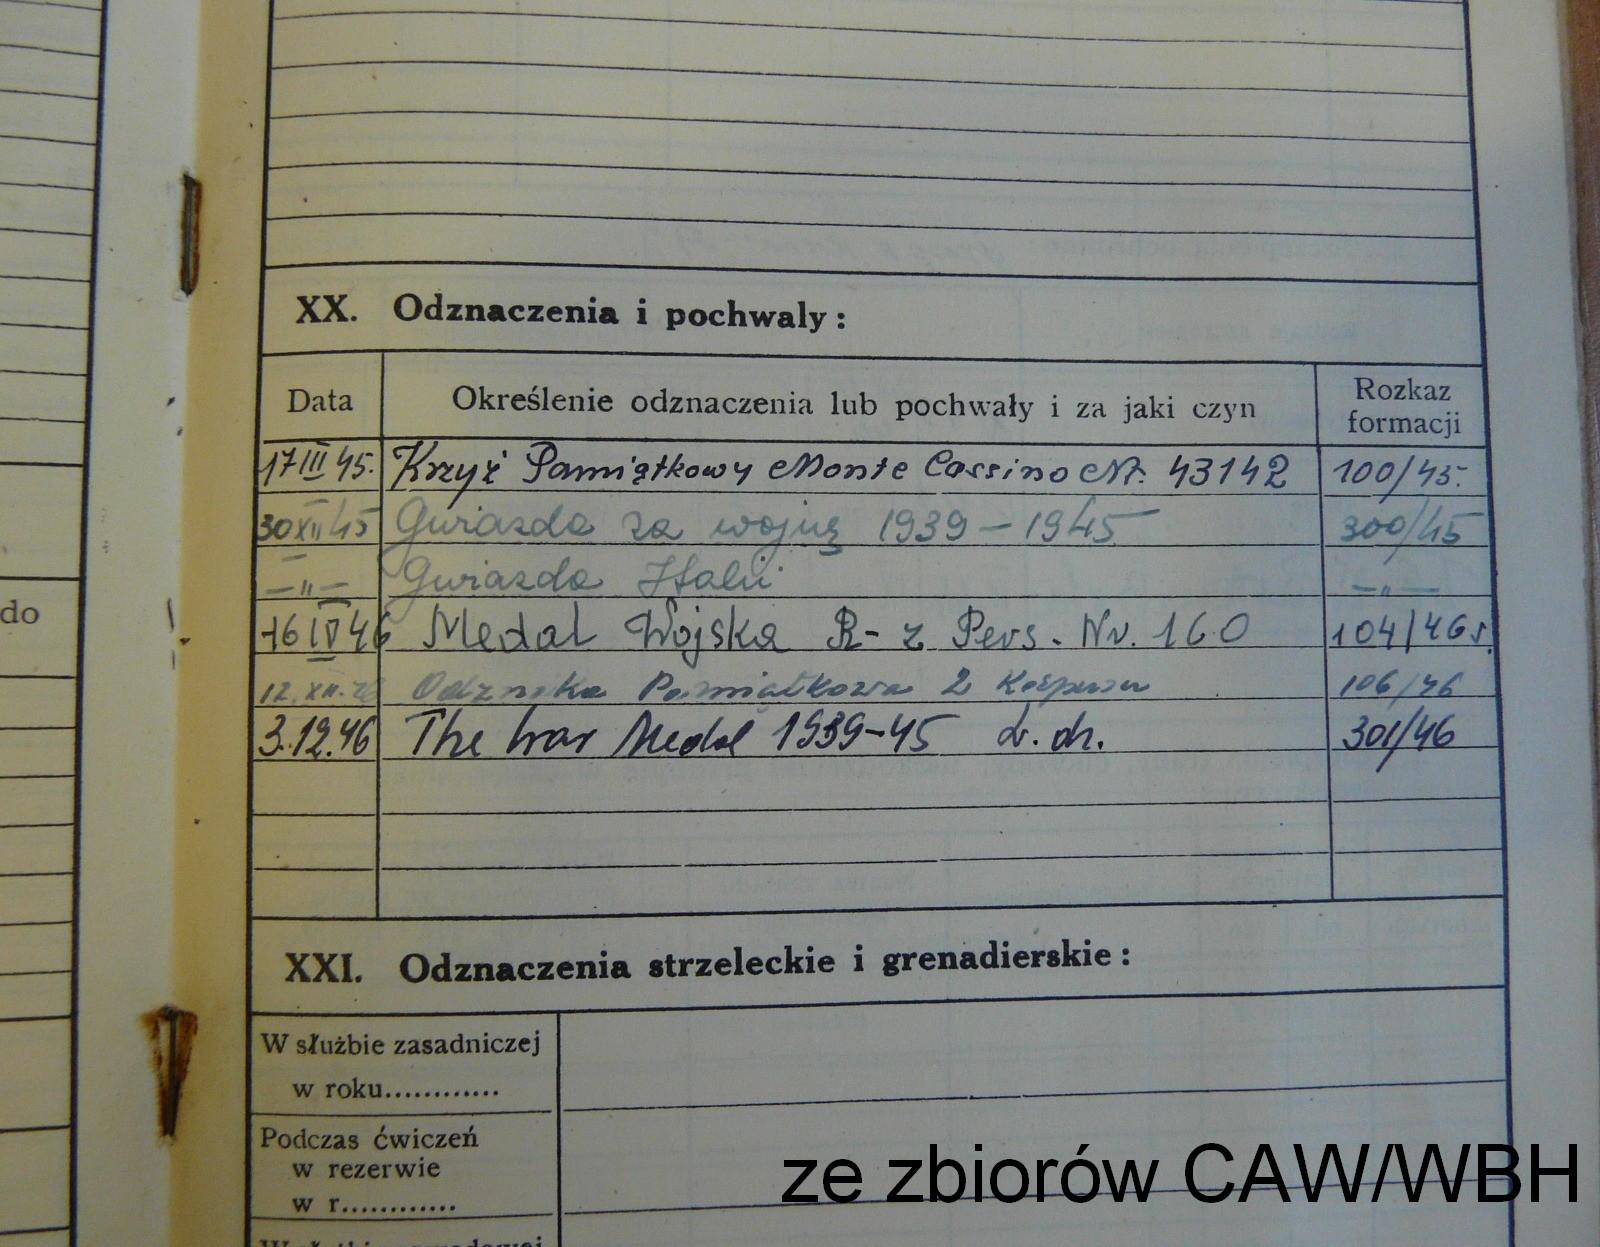 XX. Odznaczenia i pochwały:
Data Określenie odznaczenia lub pochwały i za jaki czyn Rozkaz formacji
17 III 45. Krzyż Pamiątkowy Monte Cassino Nr. 43142 100/45.
30 XII 45 Gwiazda za wojnę 1939 – 1945 300/45
– " – Gwiazda Italii – " –
16 IV 46 Medal Wojska R- z Pers. Nr. 160 104/46 r.
12. XII. 46 Odznaka Pamiątkowa 2 Korpusu 106/46
3.12.46 The War Medal 1939-45 301/46
XXI. Odznaczenia strzeleckie i grenadierskie:
W służbie zasadniczej
w roku............
Podczas ćwiczeń
w rezerwie
w r............
do
ze zbiorów CAW/WBH